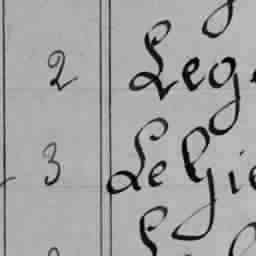 2 Leg
3 LeGie